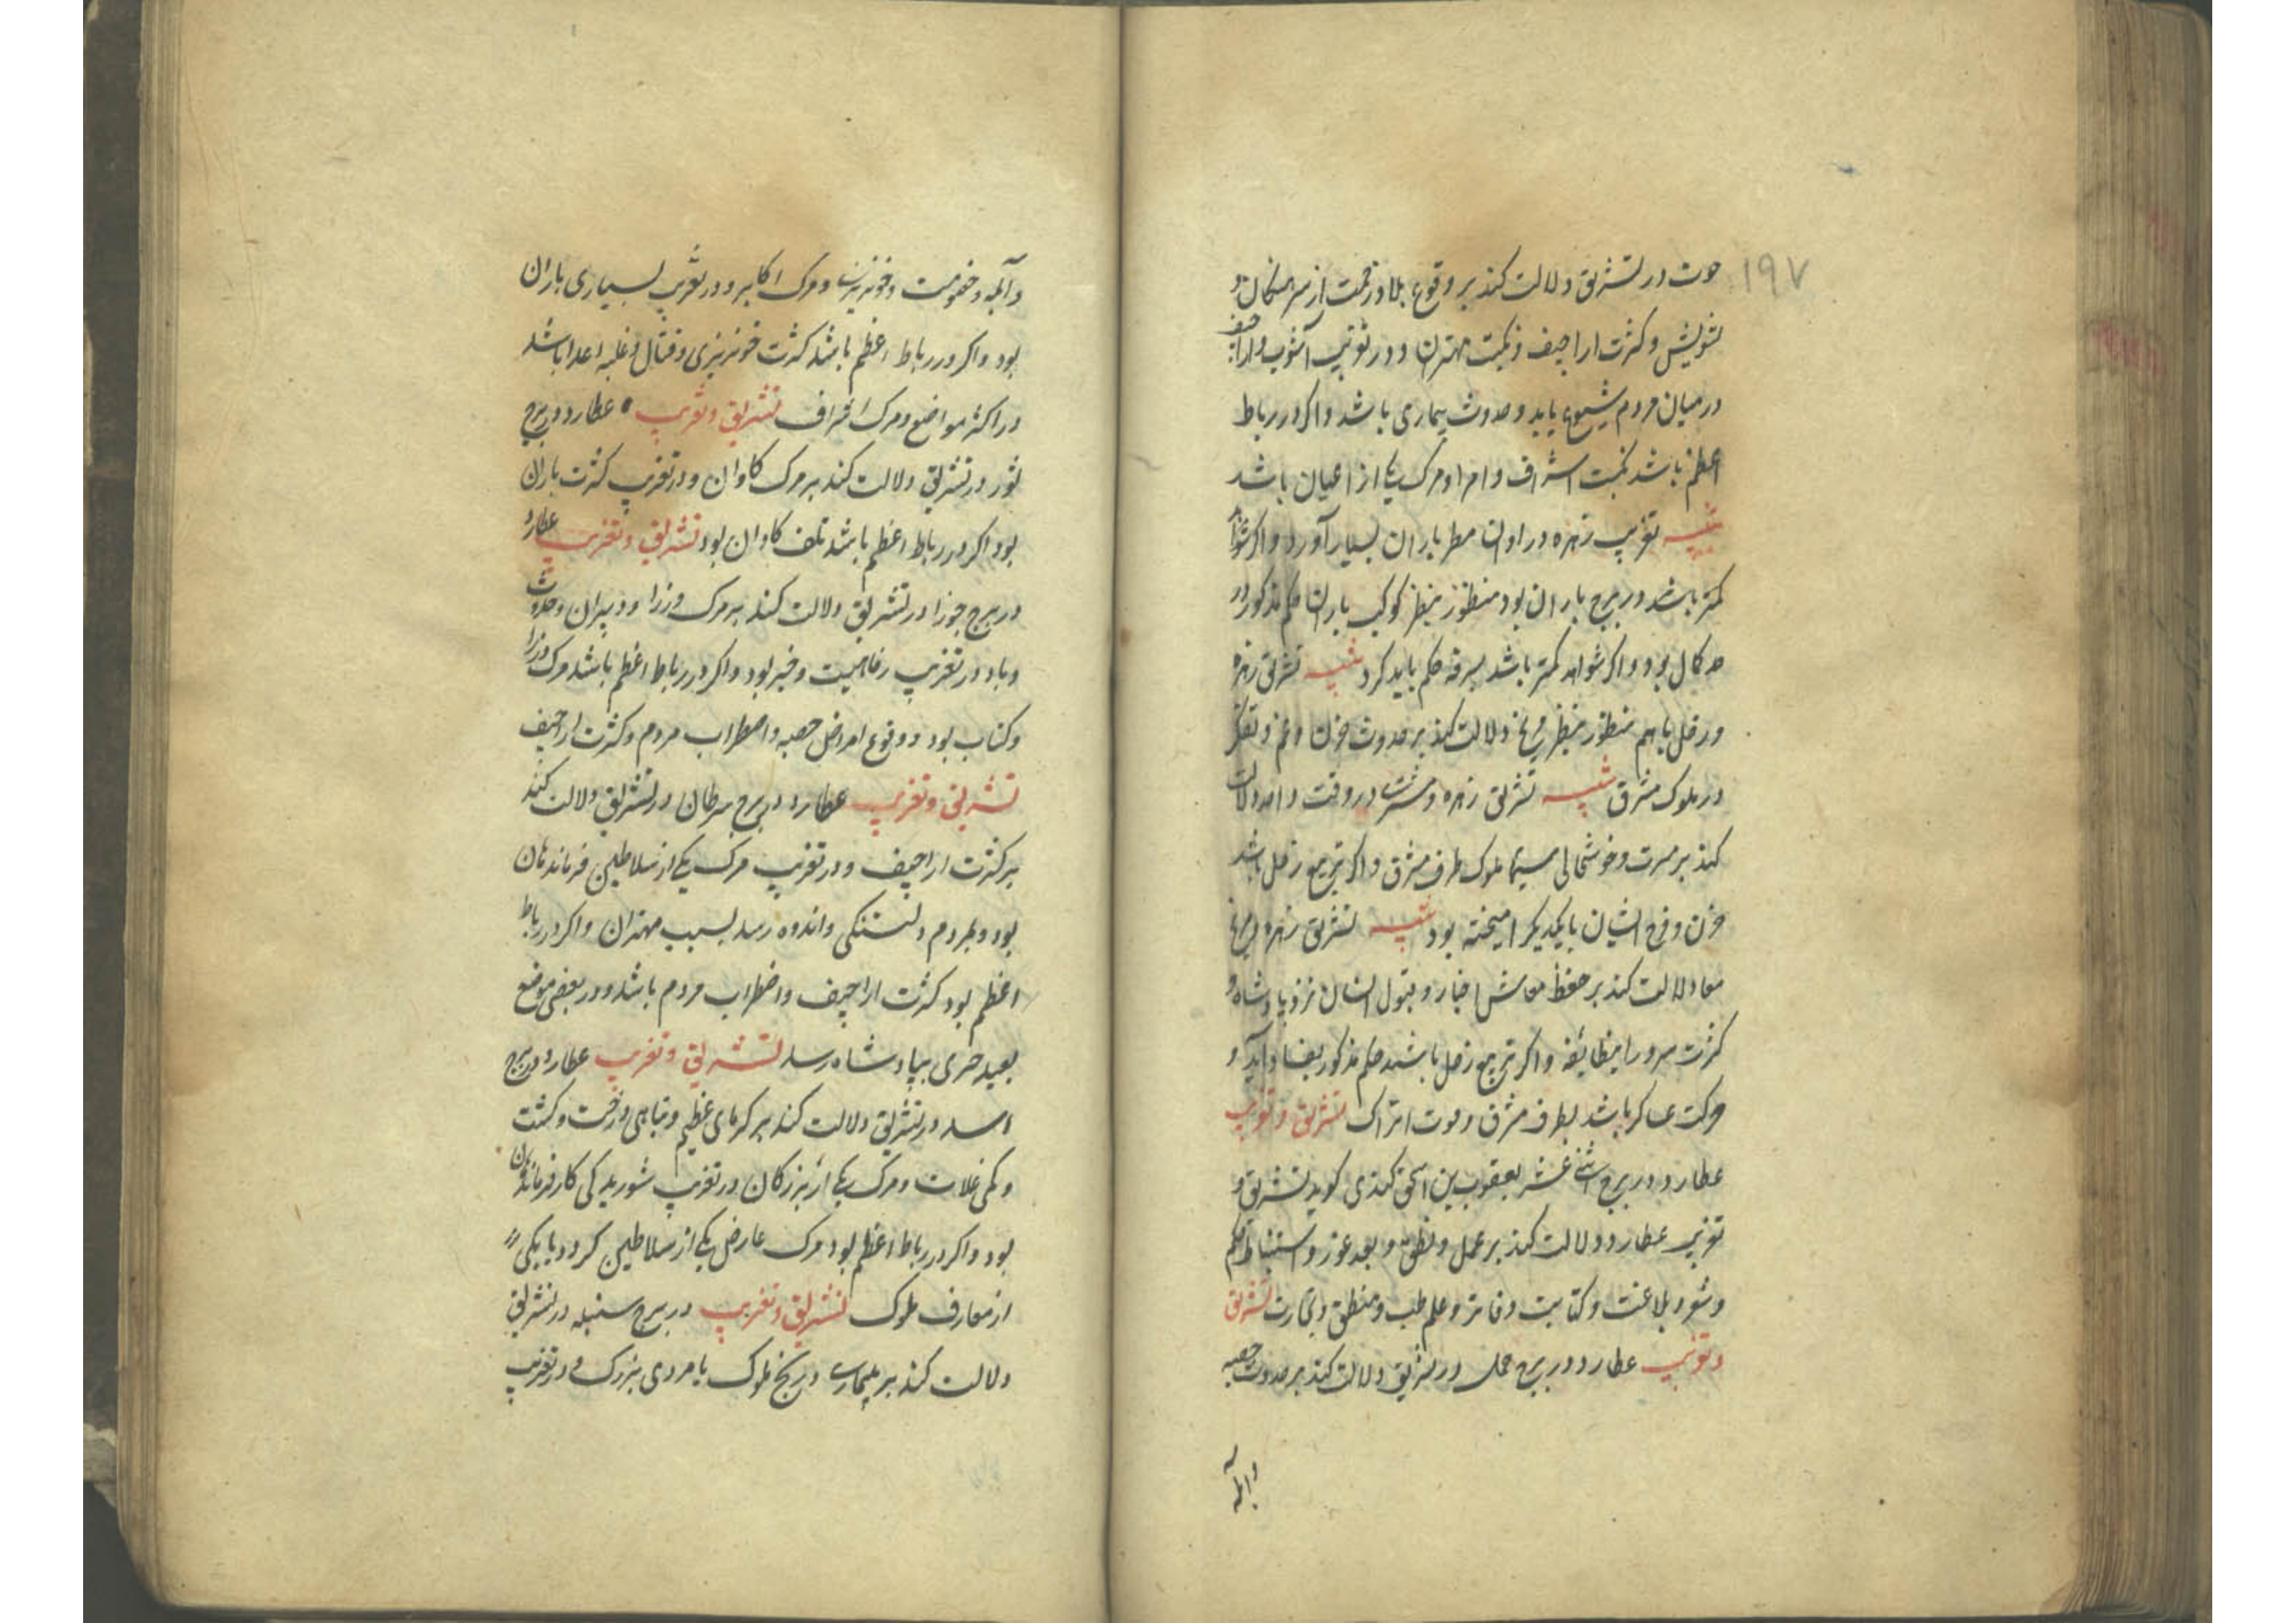 ۱۹۷
حوت در تشریق دلالت کند بر وقوع بلا و زحمت از سرهنکان و
تشویش و کثرت اراجیف و نکبت مهتران و در تغریب آشوب و اراجیف
در میان مردم شیوع یابد و حدوث بیماری باشد و اکر در رباط
اعظم باشد نکبت اشراف و امرا و مرک یکی از اعیان باشد
تنبیه تغریب زهره در اوان مطر باران بسیار آورد و اکر شواهد
کمتر باشد در برج باران بود منظور بنظر کوکب باران حکم مذکور در
حد کمال بود و اکر شواهد کمتر باشد بمرقه حکم باید کرد تنبیه تشریق زهره
و زحل با هم منظور بنظر مریخ دلالت کند بر حدوث حزن و غم و تفکر
در ملوک مشرق تنبیه تشریق زهره و مشتری در وقت واحد دلالت
کند بر مسرت و خوشحالی سیما ملوک طرف مشرق و اکر بتربیع زحل باشد
حزن و فرح ایشان با یکدیکر امیخته بود تنبیه تشریق زهره و مریخ
معا دلالت کند بر حفظ معاش اخیار و قبول ایشان نزد پادشاه و
کثرت سرور اینطائفه و اکر بتربیع زحل باشد حکم مذکور بفساد آید و
حرکت عساکر باشد بطرف مشرق و موت اتراک تشریق و تغریب
عطارد در برج اثنی عشر یعقوب بن اسحق کندی کوید تشریق و
تغریب عطارد دلالت کند بر عمل و نطق و بعد غور و استنباط حکم
و شعر و بلاغت و کتابت دفاتر و علم طب و منطق و تجارت تشریق
و تغریب عطارد در برج حمل در تشریق دلالت کند بر حدوث حصبه
وآبله
و آبله و خصومت و خونریزی و مرک اکابر و در تغریب بسیاری باران
بود و اکر در رباط اعظم باشد کثرت خونریزی و قتال و غلبه اعدا باشد
در اکثر مواضع و مرک اشراف تشریق و تغریب عطارد در برج
ثور در تشریق دلالت کند بر مرک کاوان و در تغریب کثرت باران
بود اکر در رباط اعظم باشد تلف کاوان بود تشریق و تغریب عطارد
در برج جوزا در تشریق دلالت کند بر مرک وزرا و دبیران و حدوث
وبا و در تغریب رفاهیت و خیر بود و اکر در رباط اعظم باشد مرک وزرا
و کتاب بود و وقوع امراض حصبه و اضطراب مردم و کثرت اراجیف
تشریق و تغریب عطارد در برج سرطان در تشریق دلالت کند
بر کثرت اراجیف و در تغریب مرک یکی از سلاطین فرماندهان
بود و بمردم دلتنکی و اندوه رسد بسبب مهتران و اکر در رباط
اعظم بود کثرت اراجیف و اضطراب مردم باشد و در بعضی موضع
بعید خبری بپادشاه رسد تشریق و تغریب عطارد در برج
اسد در تشریق دلالت کند بر کرمای عظیم و تباهی درخت و کشت
و کمی غلات و مرک یکی از بزرکان در تغریب شوریدکی کار فرماندهان
بود و اکر در رباط اعظم بود مرک عارض یکی از سلاطین کردد یا یکی
از معارف ملوک تشریق و تغریب در برج سنبله در تشریق
دلالت کند بر بیماری و رنج ملوک یا مردی بزرک و در تغریب